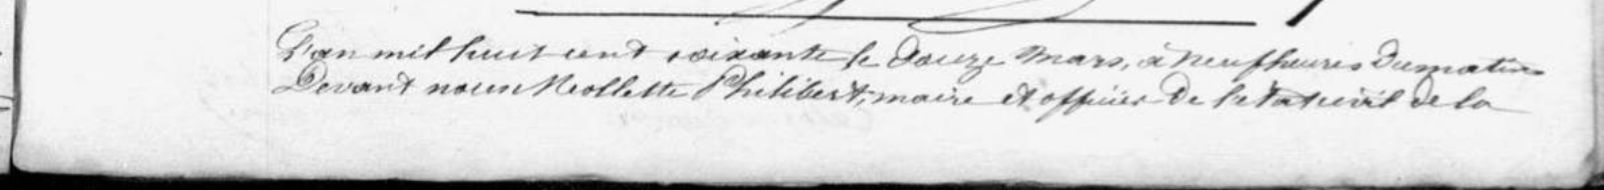 L'an mil huit cent soixante le douze Mars, à neuf heures du matin
Devant nous Meollette Philibert, maire et officier de l'etat civil de la